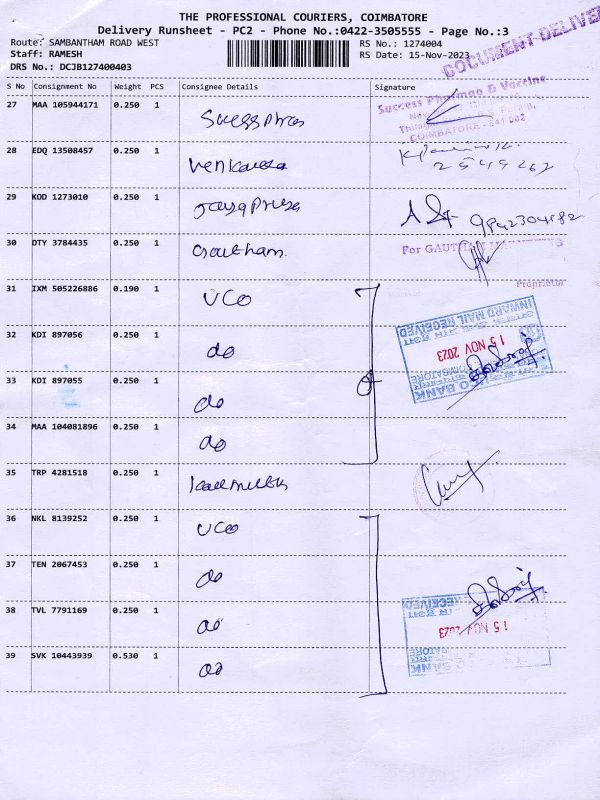 THE PROFESSIONAL COURIERS, COIMBATORE
Delivery Runsheet - PC2 - Phone No.:0422-3505555 - Page No.:3
Route: SAMBANTHAM ROAD WEST RS No.: 1274004
Staff: RAMESH RS Date: 15-Nov-2023
DRS No.: DCJB127400403
DOCUMENT-DELIVER
S No Consignment No Weight PCS Consignee Details Signature
27 MAA 105944171 0.250 1
Success Pharma & Vaccine
COIMBATORE - 641 002
28 EDQ 13508457 0.250 1
2549262
29 KOD 1273010 0.250 1
30 DTY 3784435 0.250 1 Goutham.
For
Proprietor
31 IXM 505226886 0.190 1 UCO
INWARD MAIL RECEIVED
15 NOV 2023
UCO BANK
32 KDI 897056 0.250 1 do
33 KDI 897055 0.250 1 do
34 MAA 104081896 0.250 1 do
35 TRP 4281518 0.250 1
36 NKL 8139252 0.250 1 UCO
37 TEN 2067453 0.250 1 do
38 TVL 7791169 0.250 1 do
RECEIVED
15 NOV 2023
39 SVK 10443939 0.530 1 do
BANK